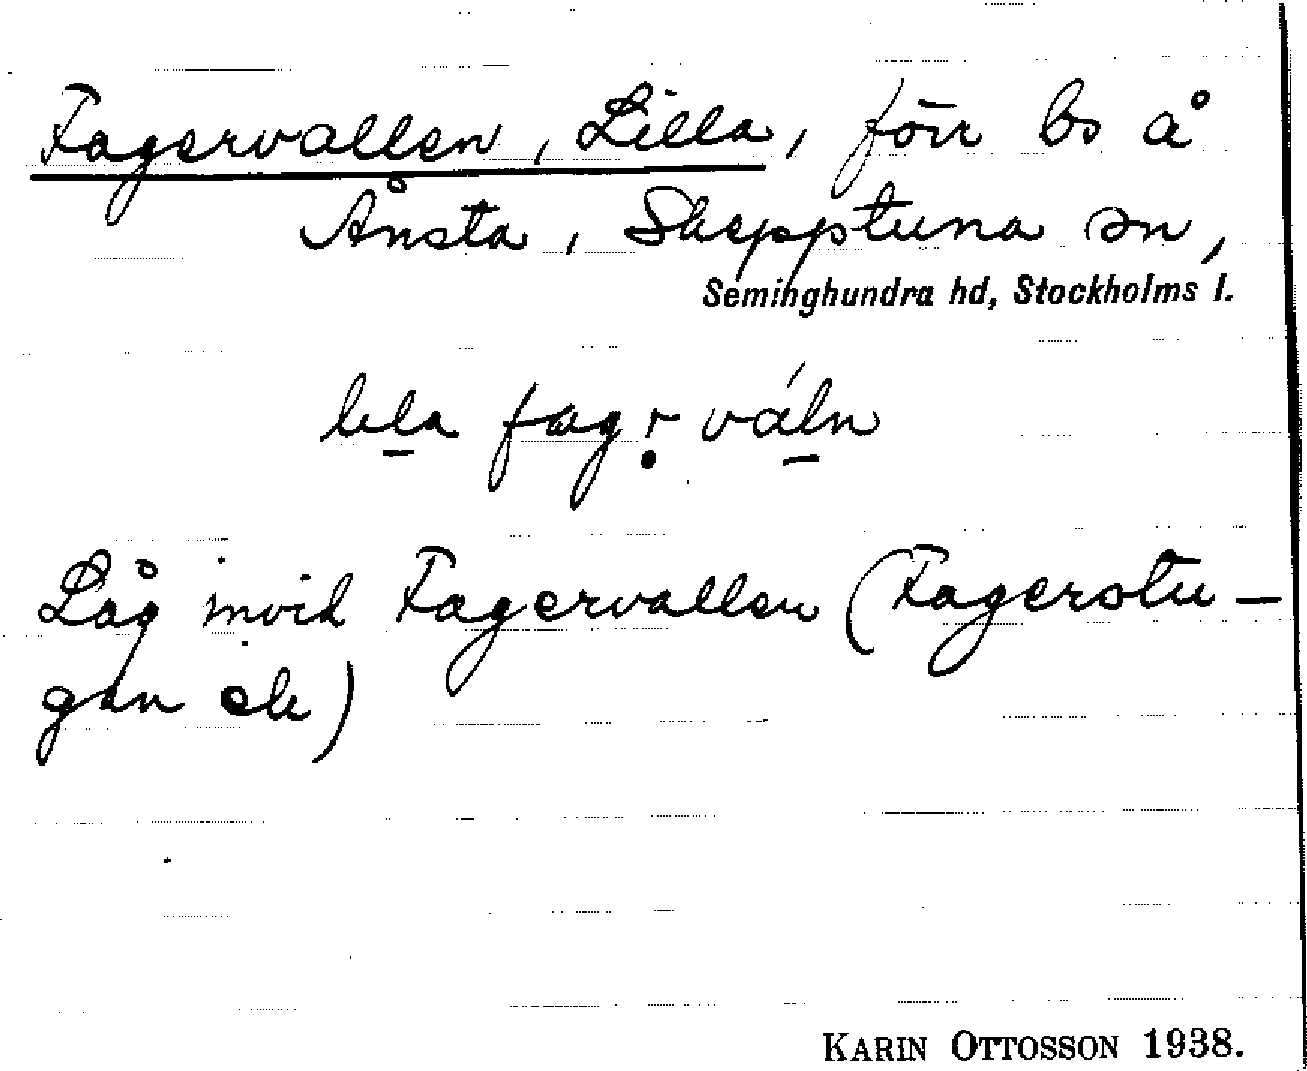 Fagervallen, Lilla, förr bs å
Ånsta, Skepptuna sn,
Seminghundra hd, Stockholms l.
lila fagṛ váln
Låg invid Fagervallen (Fagerstu-
gan ek)
KARIN OTTOSSON 1938.